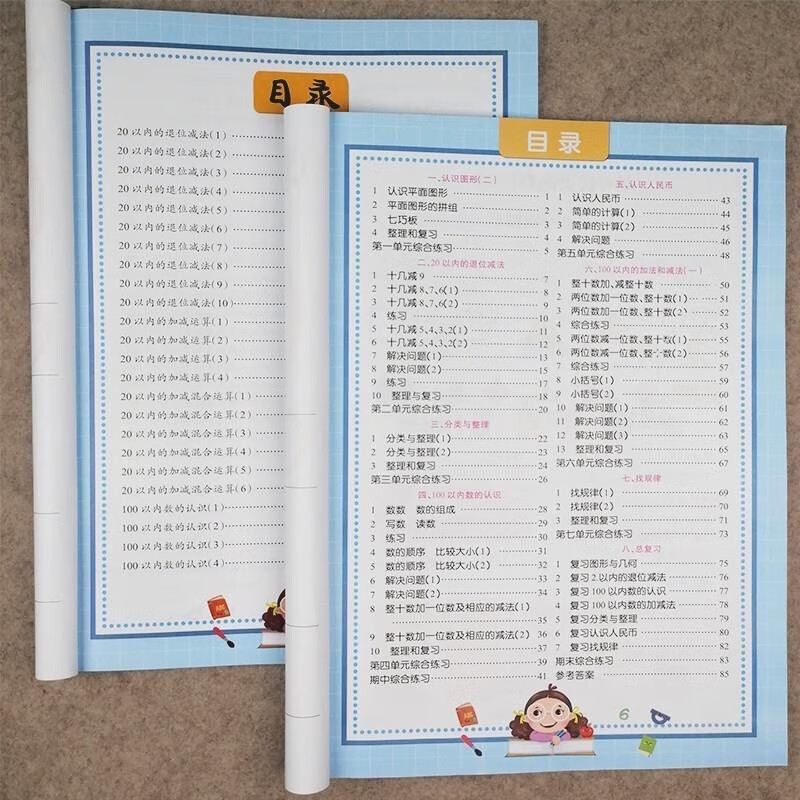 目录
20以内的退位减法(1)
20以内的退位减法(2)
20以内的退位减法(3)
20以内的退位减法(4)
20以内的退位减法(5)
20以内的退位减法(6)
20以内的退位减法(7)
20以内的退位减法(8)
20以内的退位减法(9)
20以内的退位减法(10)
20以内的加减运算(1)
20以内的加减运算(2)
20以内的加减运算(3)
20以内的加减运算(4)
20以内的加减混合运算(1)
20以内的加减混合运算(2)
20以内的加减混合运算(3)
20以内的加减混合运算(4)
20以内的加减混合运算(5)
20以内的加减混合运算(6)
100以内数的认识(1)
100以内数的认识(2)
100以内数的认识(3)
100以内数的认识(4)
目录
一、认识图形(二)
1 认识平面图形 1
2 平面图形的拼组 2
3 七巧板 3
4 整理和复习 4
第一单元综合练习 5
二、20以内的退位减法
1 十几减9 7
2 十几减8、7、6(1) 8
3 十几减8、7、6(2) 9
4 练习 10
5 十几减5、4、3、2(1) 11
6 十几减5、4、3、2(2) 12
7 解决问题(1) 13
8 解决问题(2) 15
9 练习 17
10 整理与复习 18
第二单元综合练习 20
三、分类与整理
1 分类与整理(1) 22
2 分类与整理(2) 23
3 整理和复习 24
第三单元综合练习 26
四、100以内数的认识
1 数数 数的组成 28
2 写数 读数 29
3 练习 30
4 数的顺序 比较大小(1) 31
5 数的顺序 比较大小(2) 32
6 解决问题(1) 33
7 解决问题(2) 34
8 整十数加一位数及相应的减法(1)
35
9 整十数加一位数及相应的减法(2) 36
10 整理和复习 37
第四单元综合练习 39
期中综合练习 41
五、认识人民币
1 认识人民币 43
2 简单的计算(1) 44
3 简单的计算(2) 45
4 解决问题 46
第五单元综合练习 48
六、100以内的加法和减法(一)
1 整十数加、减整十数 50
2 两位数加一位数、整十数(1) 51
3 两位数加一位数、整十数(2) 52
4 综合练习 53
5 两位数减一位数、整十数(1) 55
6 两位数减一位数、整十数(2) 56
7 综合练习 57
8 小括号(1) 59
9 小括号(2) 60
10 解决问题(1) 61
11 解决问题(2) 62
12 解决问题(3) 63
13 整理和复习 65
第六单元综合练习 67
七、找规律
1 找规律(1) 69
2 找规律(2) 70
3 整理和复习 71
第七单元综合练习 73
八、总复习
1 复习图形与几何 75
2 复习2.以内的退位减法 76
3 复习100以内数的认识 77
4 复习100以内数的加减法 78
5 复习分类与整理 79
6 复习认识人民币 80
7 复习找规律 82
期末综合练习 83
参考答案 85
6